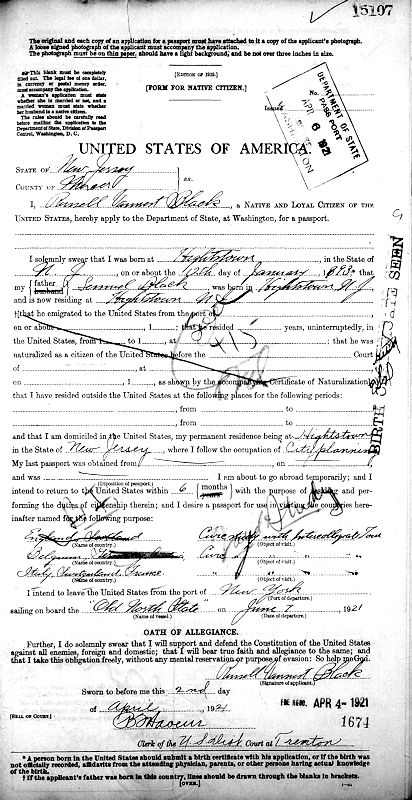 15107
The original and each copy of an application for a passport must have attached to it a copy of the applicant's photograph.
A loose signed photograph of the applicant must accompany the application.
The photograph must be on thin paper, should have a light background, and be not over three inches in size.
This blank must be completely
filled out. The legal fee of one dollar,
in currency or postal money order,
must accompany the application.
A woman's application must state
whether she is married or not, and a
married woman must state whether
her husband is a native citizen.
The rules should be carefully read
before mailing the application to the
Department of State, Division of Passport
Control, Washington, D. C.
[EDITION OF 1921.]
[FORM FOR NATIVE CITIZEN.]
No.
Issued
DEPARTMENT OF STATE
PASSPORT
APR 6 1921
WASHINGTON
UNITED STATES OF AMERICA.
STATE OF New Jersey
COUNTY OF Mercer
ss.
I, Russell Vannest Black, a NATIVE AND LOYAL CITIZEN OF THE
UNITED STATES, hereby apply to the Department of State, at Washington, for a passport.
I solemnly swear that I was born at Hightstown, in the State of
N. J., on or about the 12th day of January, 1893; that
my {father husband} Samuel Black, was born in Hightstown N. J.
and is now residing at Hightstown N. J.
‡[that he emigrated to the United States from the port of
on or about , 1 ; that he resided years, uninterruptedly, in
the United States, from 1 to 1 , at ; that he was
naturalized as a citizen of the United States before the Court
of at
on , 1 , as shown by the accompanying Certificate of Naturalization]
that I have resided outside the United States at the following places for the following periods:
, from to
, from to
and that I am domiciled in the United States, my permanent residence being at Hightstown
in the State of New Jersey, where I follow the occupation of City planning
My last passport was obtained from
and was I am about to go abroad temporarily; and I
(Disposition of passport.)
intend to return to the United States within 6 {months years} with the purpose of residing and per-
forming the duties of citizenship therein; and I desire a passport for use in visiting the countries herei-
nafter named for the following purpose:
England Scotland Civic study with Intercollegiate Tour
(Name of country.) (Object of visit.)
Belgium, Civic " " "
(Name of country.) (Object of visit.)
Italy, Switzerland, France " " " "
(Name of country.) (Object of visit.)
I intend to leave the United States from the port of New York
(Port of departure.)
sailing on board the "Old North State" on June 7, 1921
(Name of vessel.) (Date of departure.)
BIRTH CERTIFICATE SEEN
415
OATH OF ALLEGIANCE.
Further, I do solemnly swear that I will support and defend the Constitution of the United States
against all enemies, foreign and domestic; that I will bear true faith and allegiance to the same; and
that I take this obligation freely, without any mental reservation or purpose of evasion: So help me God.
Russell Vannest Black
(Signature of applicant.)
Sworn to before me this 2nd day
of April, 1921
FEE RECD. APR 4- 1921
[SEAL OF COURT.]
1674
Clerk of the U S Dist Court at Trenton
* A person born in the United States should submit a birth certificate with his application, or if the birth was
not officially recorded, affidavits from the attending physician, parents, or other persons having actual knowledge
of the birth.
‡ If the applicant's father was born in this country, lines should be drawn through the blanks in brackets.
[OVER.]